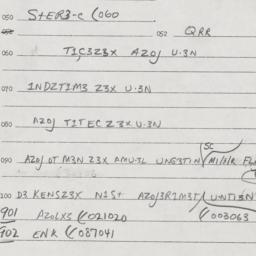 050 STER3-C (060
052 QRR
060 T1C3Z3X AZOJ U·3N
070 1NDZT1M3 Z3X U·3N
080 AZOJ T1TEC Z3X U·3N
SC
090 AZOJ OT M3N Z3X AMU·TL
100 D3 KENSZ3X N1S+ AZOJ3R1M3T/ U·NT13N
901 AZOLXS ((021020 ((003063
902 ENR ((087041